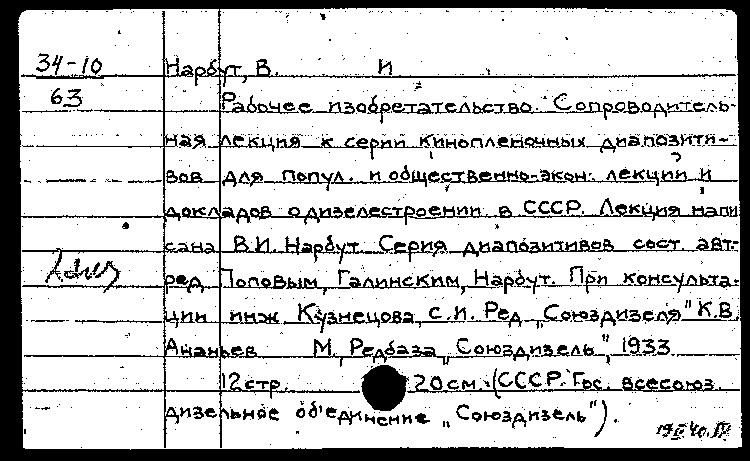 34-10
63
Нарбут, В. И
Рабочее изобретательство. Сопроводитель-
ная лекция к серии кинопленочных диапозити-
вов для попул. и общественно-экон. лекции и
докладов о дизелестроении в СССР. Лекция напи
сана В.И. Нарбут. Серия диапозитивов сост. авт.
ред. Поповым, Галинским, Нарбут. При консульта-
ции инж. Кузнецова, С.И. Ред. „Союздизеля" К.В.
Ананьев М., Редбаза „Союздизель", 1933
12 стр. 20 см. (СССР. Гос. всесоюз.
дизельное об'единение „Союздизель").